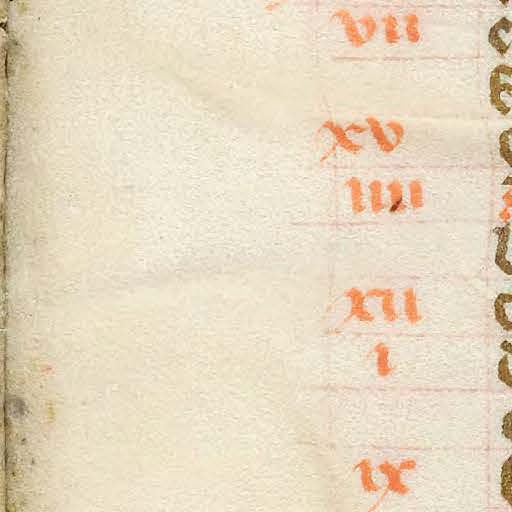 vii
xv
iiii
xii
i
ix